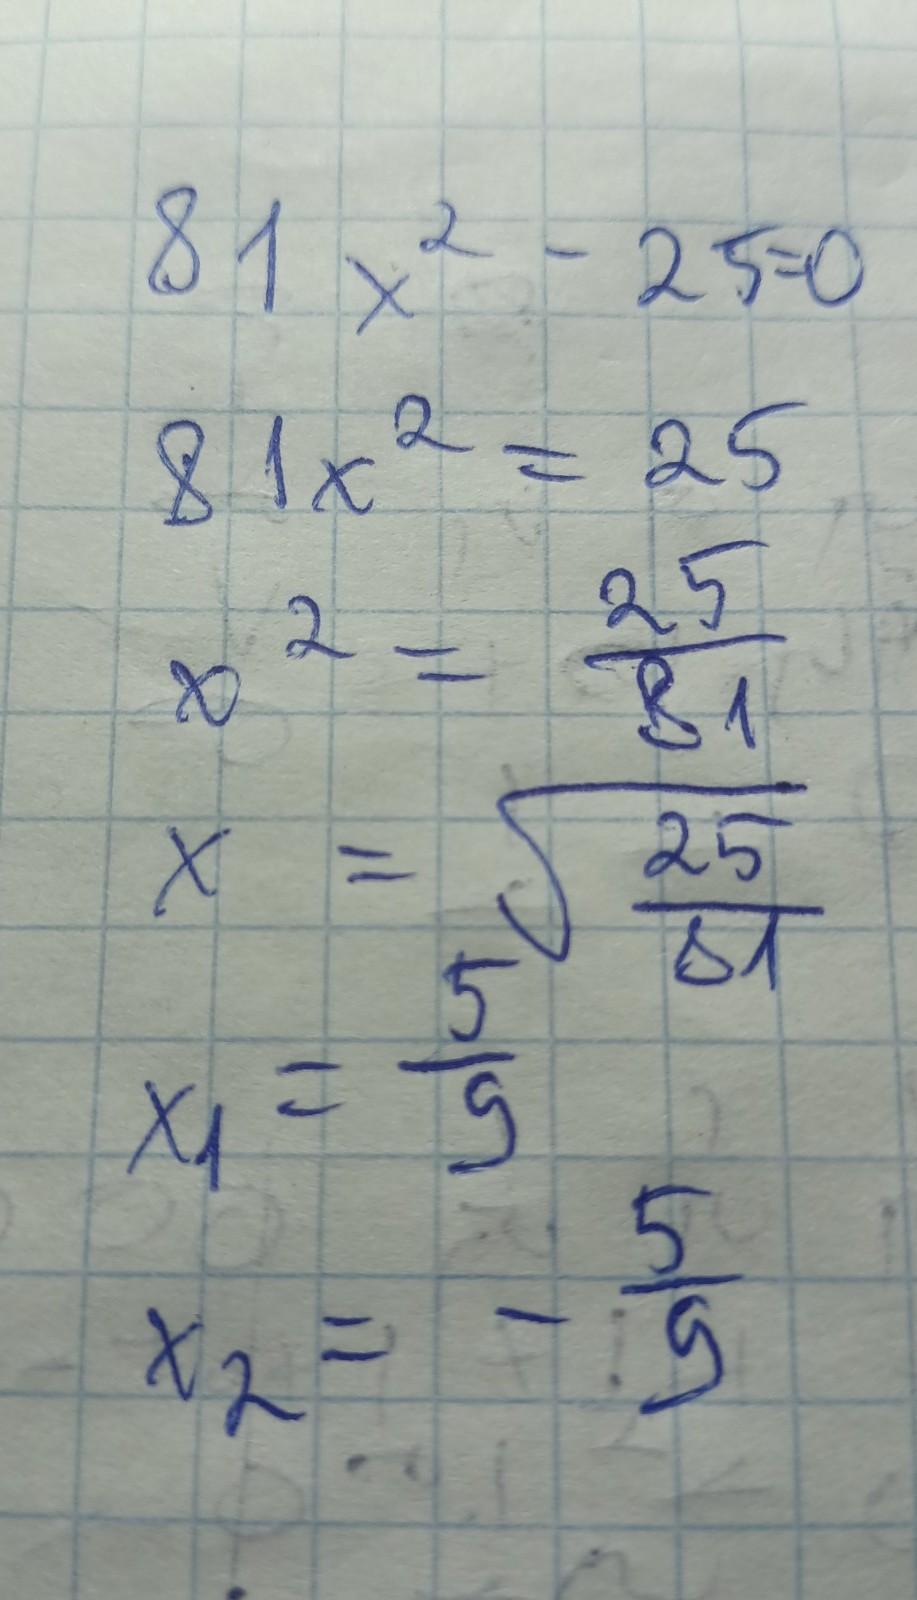 81x² - 25=0
81x² = 25
x² = 25/81
x = √(25/81)
x₁ = 5/9
x₂ = - 5/9